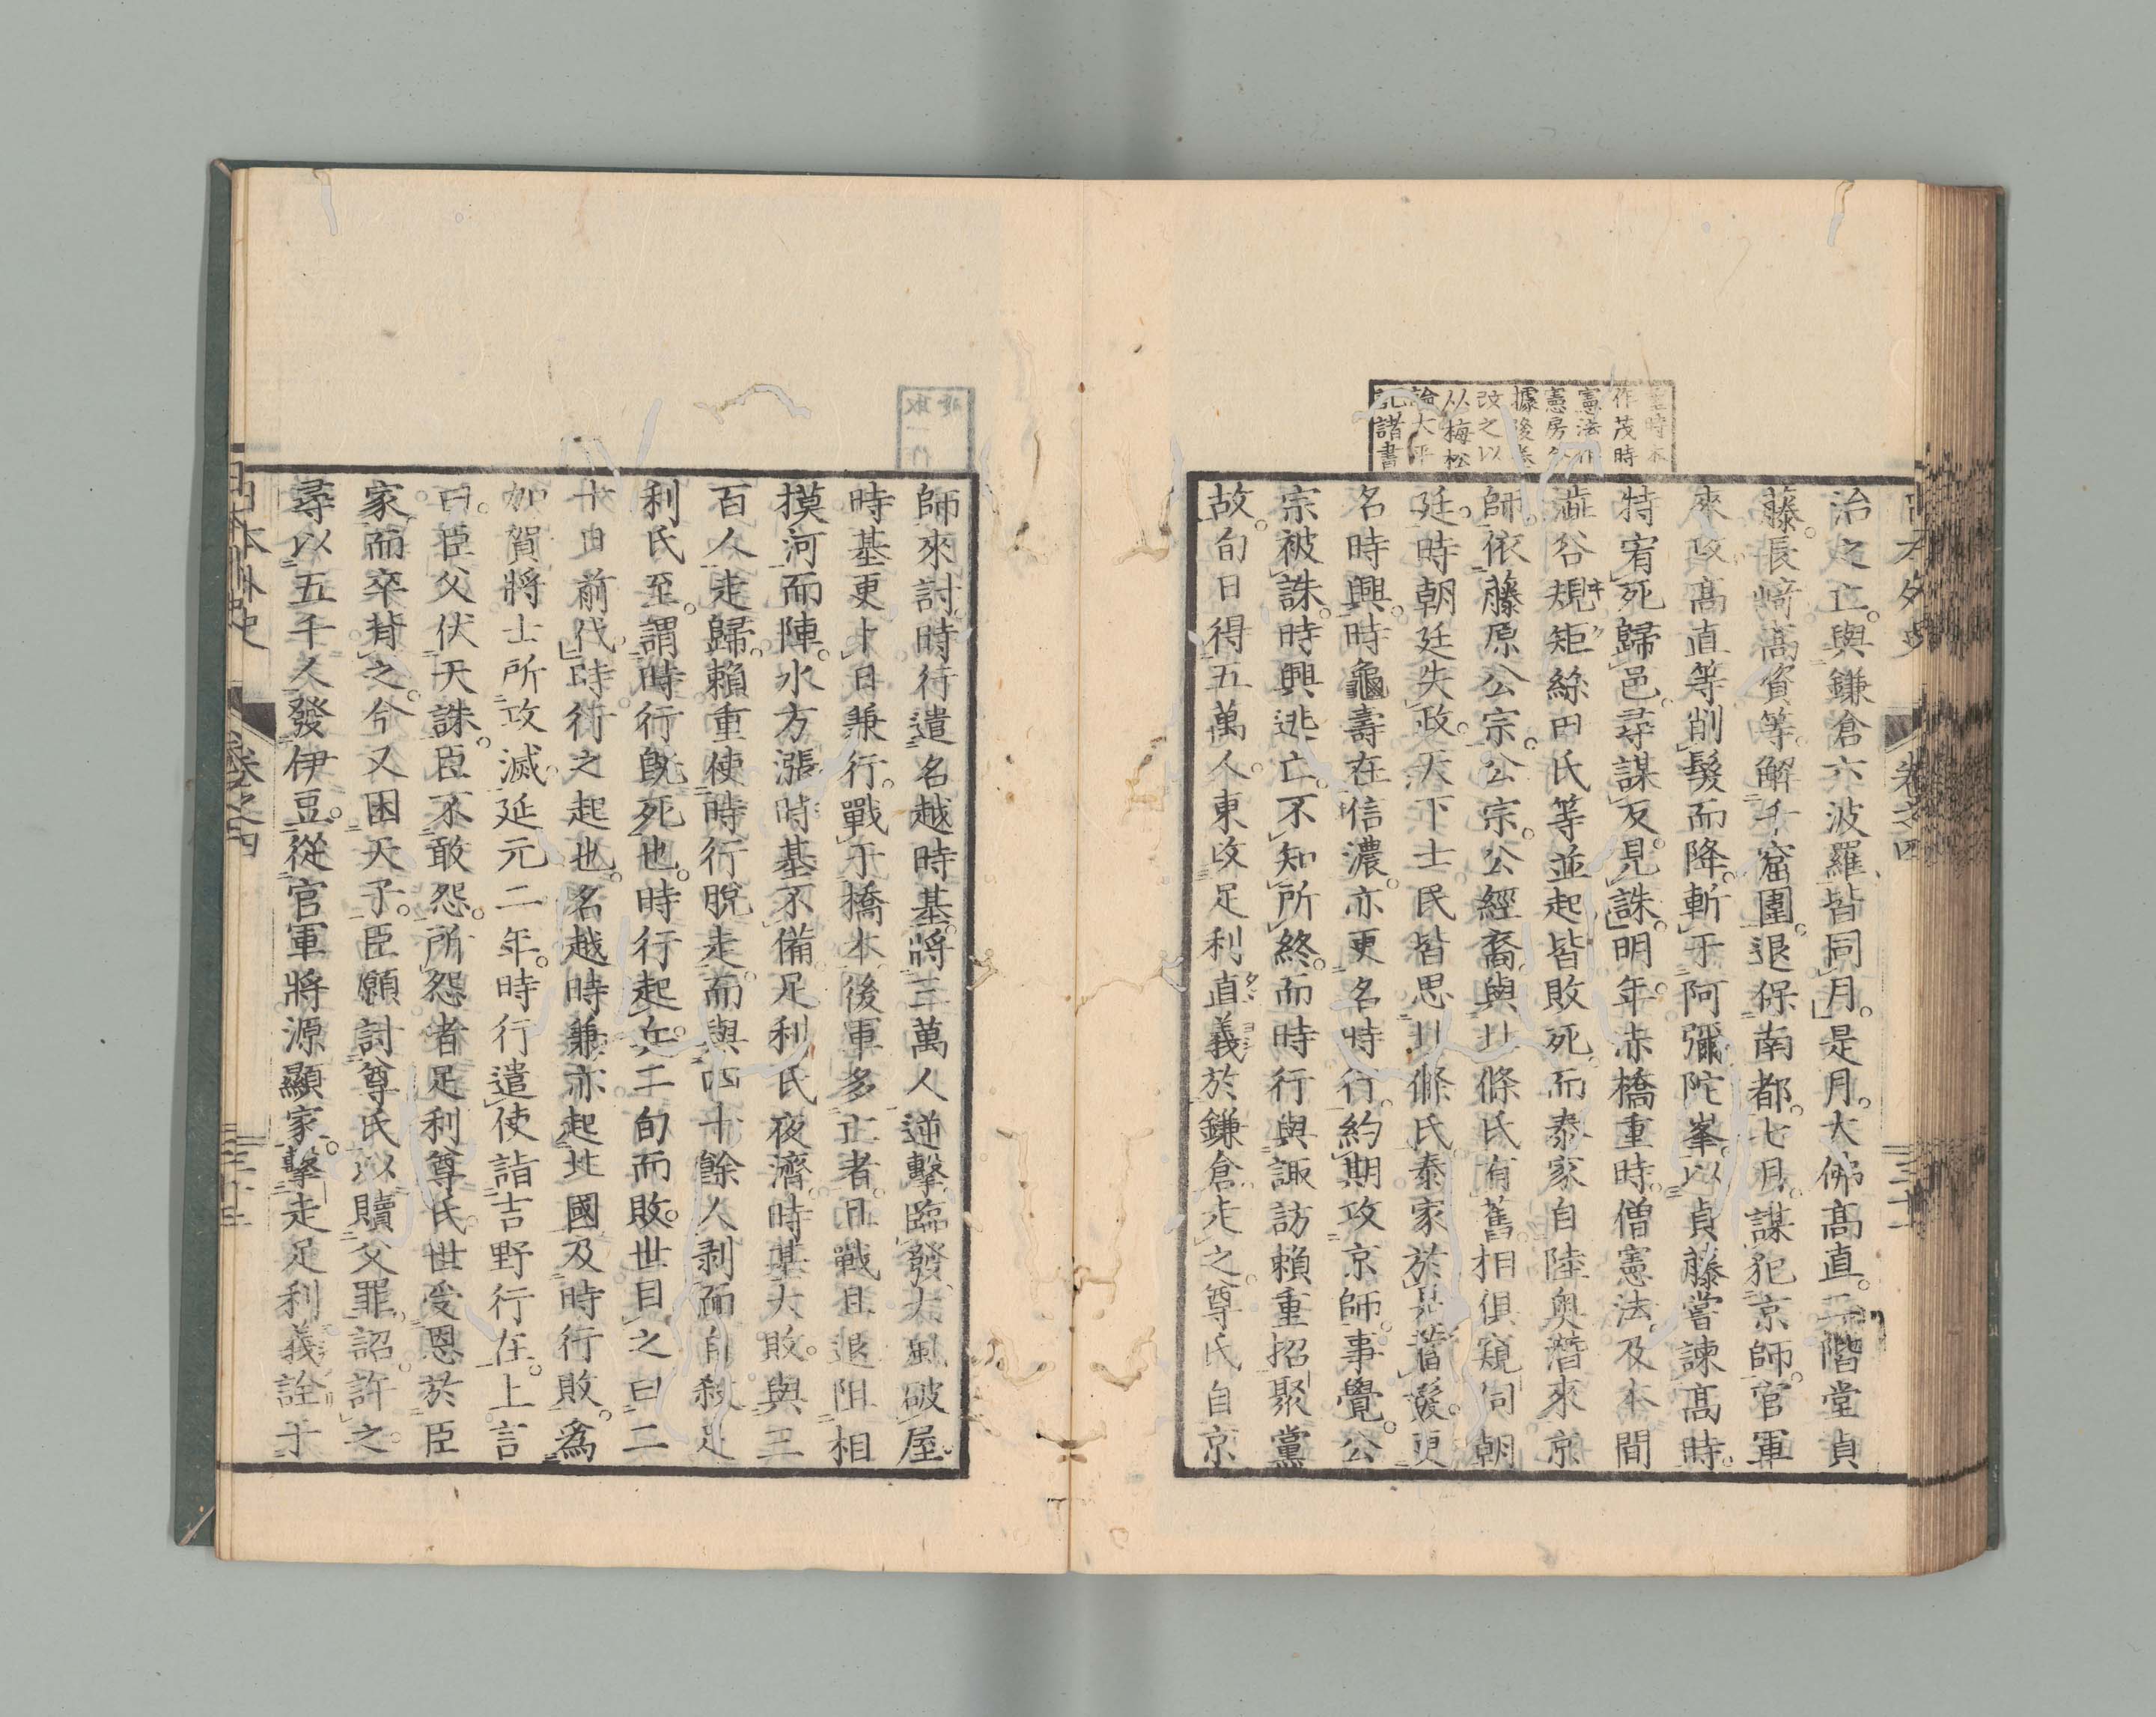 日本外史 卷之四 三十一
重時本
作茂時
憲法作
憲房今
據後卷
改之以
以梅松
論太平
記諸書
治之亡。與鎌倉六波羅皆同月。是月。大佛高直。二階堂貞
藤。長﨑高資等。解千窟圍。退保南都。七月。謀犯京師。官軍
來攻。高直等削髮而降。斬于阿彌陀峯。以貞藤嘗諫高時。
特宥死歸邑。尋謀反見誅。明年。赤橋重時。僧憲法。及本間
澁谷規矩絲田氏等並起皆敗死。而泰家自陸奥潛來京
師。依藤原公宗。公宗。公經裔。與北條氏有舊。相俱窺伺朝
廷。時朝廷失政。天下士民皆思北條氏。泰家於是蓄髮。更
名時興。時龜壽在信濃。亦更名時行。約期攻京師。事覺。公
宗被誅。時興逃亡。不知所終。而時行與諏訪賴重招聚黨
故。旬日得五萬人。東攻足利直義於鎌倉。走之。尊氏自京
師來討。時行遣名越時基。將三萬人逆擊。臨發。大風破屋。
時基更卜日兼行。戰于橋本。後軍多亡者。且戰且退。阻相
摸河而陣。水方漲。時基不備。足利氏夜濟。時基大敗。與三
百人走歸。賴重使時行脫走。而與四十餘人剥面自殺。足
利氏至。謂時行既死也。時行起兵。二旬而敗。世目之曰二
十日前代。時行之起也。名越時兼亦起北國。及時行敗。爲
加賀將士所攻滅。延元二年。時行遣使詣吉野行在。上言
曰。臣父伏天誅。臣不敢怨。所怨者足利尊氏。世受恩於臣
家。而卒背之。今又困天子。臣願討尊氏。以贖父罪。詔許之。
尋以五千人發伊豆。從官軍將源顯家。擊走足利義詮于
日本外史 卷之四